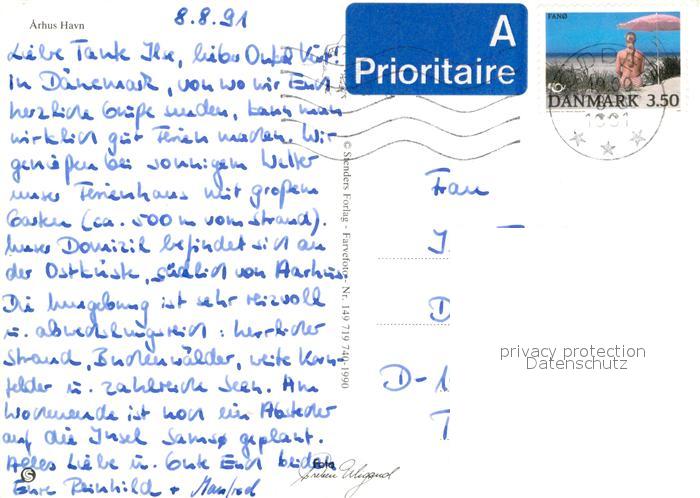 Århus Havn
8.8.91
Liebe Tante Ilse, lieber Onkel
in Dänemark, von wo wir Euch
herzliche Grüße senden, kann man
wirklich gut Ferien machen. Wir
genießen bei sonnigem Wetter
unser Ferienhaus mit großem
Garten (ca. 500 m vom Strand).
Unser Domizil befindet sich an
der Ostküste, südlich von Aarhus.
Die Umgebung ist sehr reizvoll
u. abwechslungsreich: herrlicher
Strand, Buchenwälder, weite Korn-
felder u. zahlreiche Seen. Am
Wochenende ist noch ein Abstecher
auf die Insel Samsø geplant.
Alles Liebe u. Gute Euch beiden
Eure Reinhild + Manfred
© Stenders Forlag - Farvefoto - Nr. 149 719 740-1990
A
Prioritaire
FANØ
DANMARK 3.50
1991
Frau
I
D
D-1
T
privacy protection
Datenschutz
Foto
S